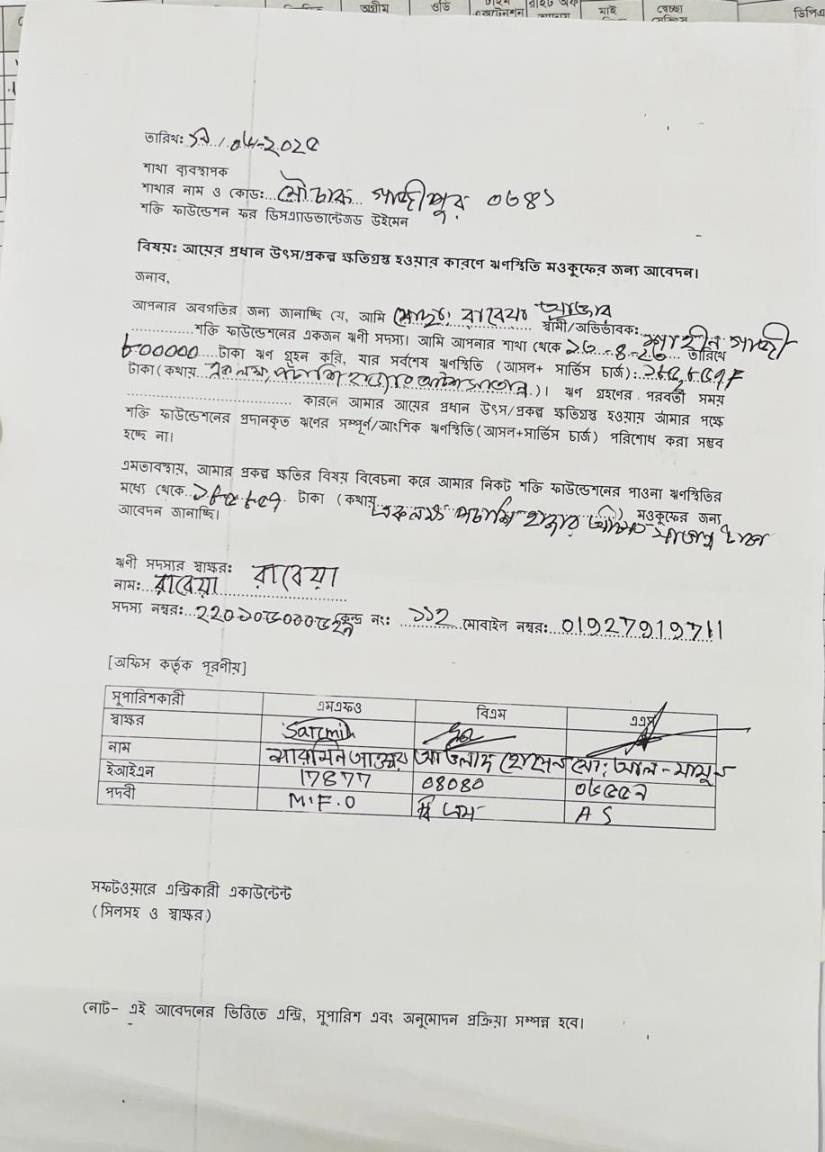 অগ্রীম ওডি মাই স্বেচ্ছা ডিপিএ
তারিখ: -04-2025
শাখা ব্যবস্থাপক
শাখার নাম ও কোড: মৌচাক গাজীপুর ০৬৪১
শক্তি ফাউন্ডেশন ফর ডিসএ্যাডভান্টেজড উইমেন
বিষয়: আয়ের প্রধান উৎস/প্রকল্প ক্ষতিগ্রস্ত হওয়ার কারণে ঋণস্থিতি মওকুফের জন্য আবেদন।
জনাব,
আপনার অবগতির জন্য জানাচ্ছি যে, আমি মোছাঃ রাবেয়া আক্তার স্বামী/অভিভাবক: শাহীন গাজী
শক্তি ফাউন্ডেশনের একজন ঋণী সদস্য। আমি আপনার শাখা থেকে তারিখে
৮০০০০০ টাকা ঋণ গ্রহন করি, যার সর্বশেষ ঋণস্থিতি (আসল+ সার্ভিস চার্জ):
টাকা(কথায়)। ঋণ গ্রহণের পরবর্তী সময়
কারনে আমার আয়ের প্রধান উৎস/প্রকল্প ক্ষতিগ্রস্ত হওয়ায় আমার পক্ষে
শক্তি ফাউন্ডেশনের প্রদানকৃত ঋণের সম্পূর্ণ/আংশিক ঋণস্থিতি(আসল+সার্ভিস চার্জ) পরিশোধ করা সম্ভব
হচ্ছে না।
এমতাবস্থায়, আমার প্রকল্প ক্ষতির বিষয় বিবেচনা করে আমার নিকট শক্তি ফাউন্ডেশনের পাওনা ঋণস্থিতির
মধ্যে থেকে ১৮৫৮৫৭ টাকা (কথায় একলক্ষ পচাশি হাজার আটশত সাতান্ন টাকা) মওকুফের জন্য
আবেদন জানাচ্ছি।
ঋণী সদস্যর স্বাক্ষর: রাবেয়া
নাম: রাবেয়া
সদস্য নম্বর: কেন্দ্র নং: ১১২ মোবাইল নম্বর: 01927919711
[অফিস কর্তৃক পূরণীয়]
সুপারিশকারী এমএফও বিএম এএস
স্বাক্ষর Sarmin
নাম শারমিন আক্তার আওলাদ হোসেন মো: আল-মামুন
ইআইএন 17877 08080
পদবী M.F.O বি এম A S
সফটওয়ারে এন্ট্রিকারী একাউন্টেন্ট
(সিলসহ ও স্বাক্ষর)
নোট- এই আবেদনের ভিত্তিতে এন্ট্রি, সুপারিশ এবং অনুমোদন প্রক্রিয়া সম্পন্ন হবে।